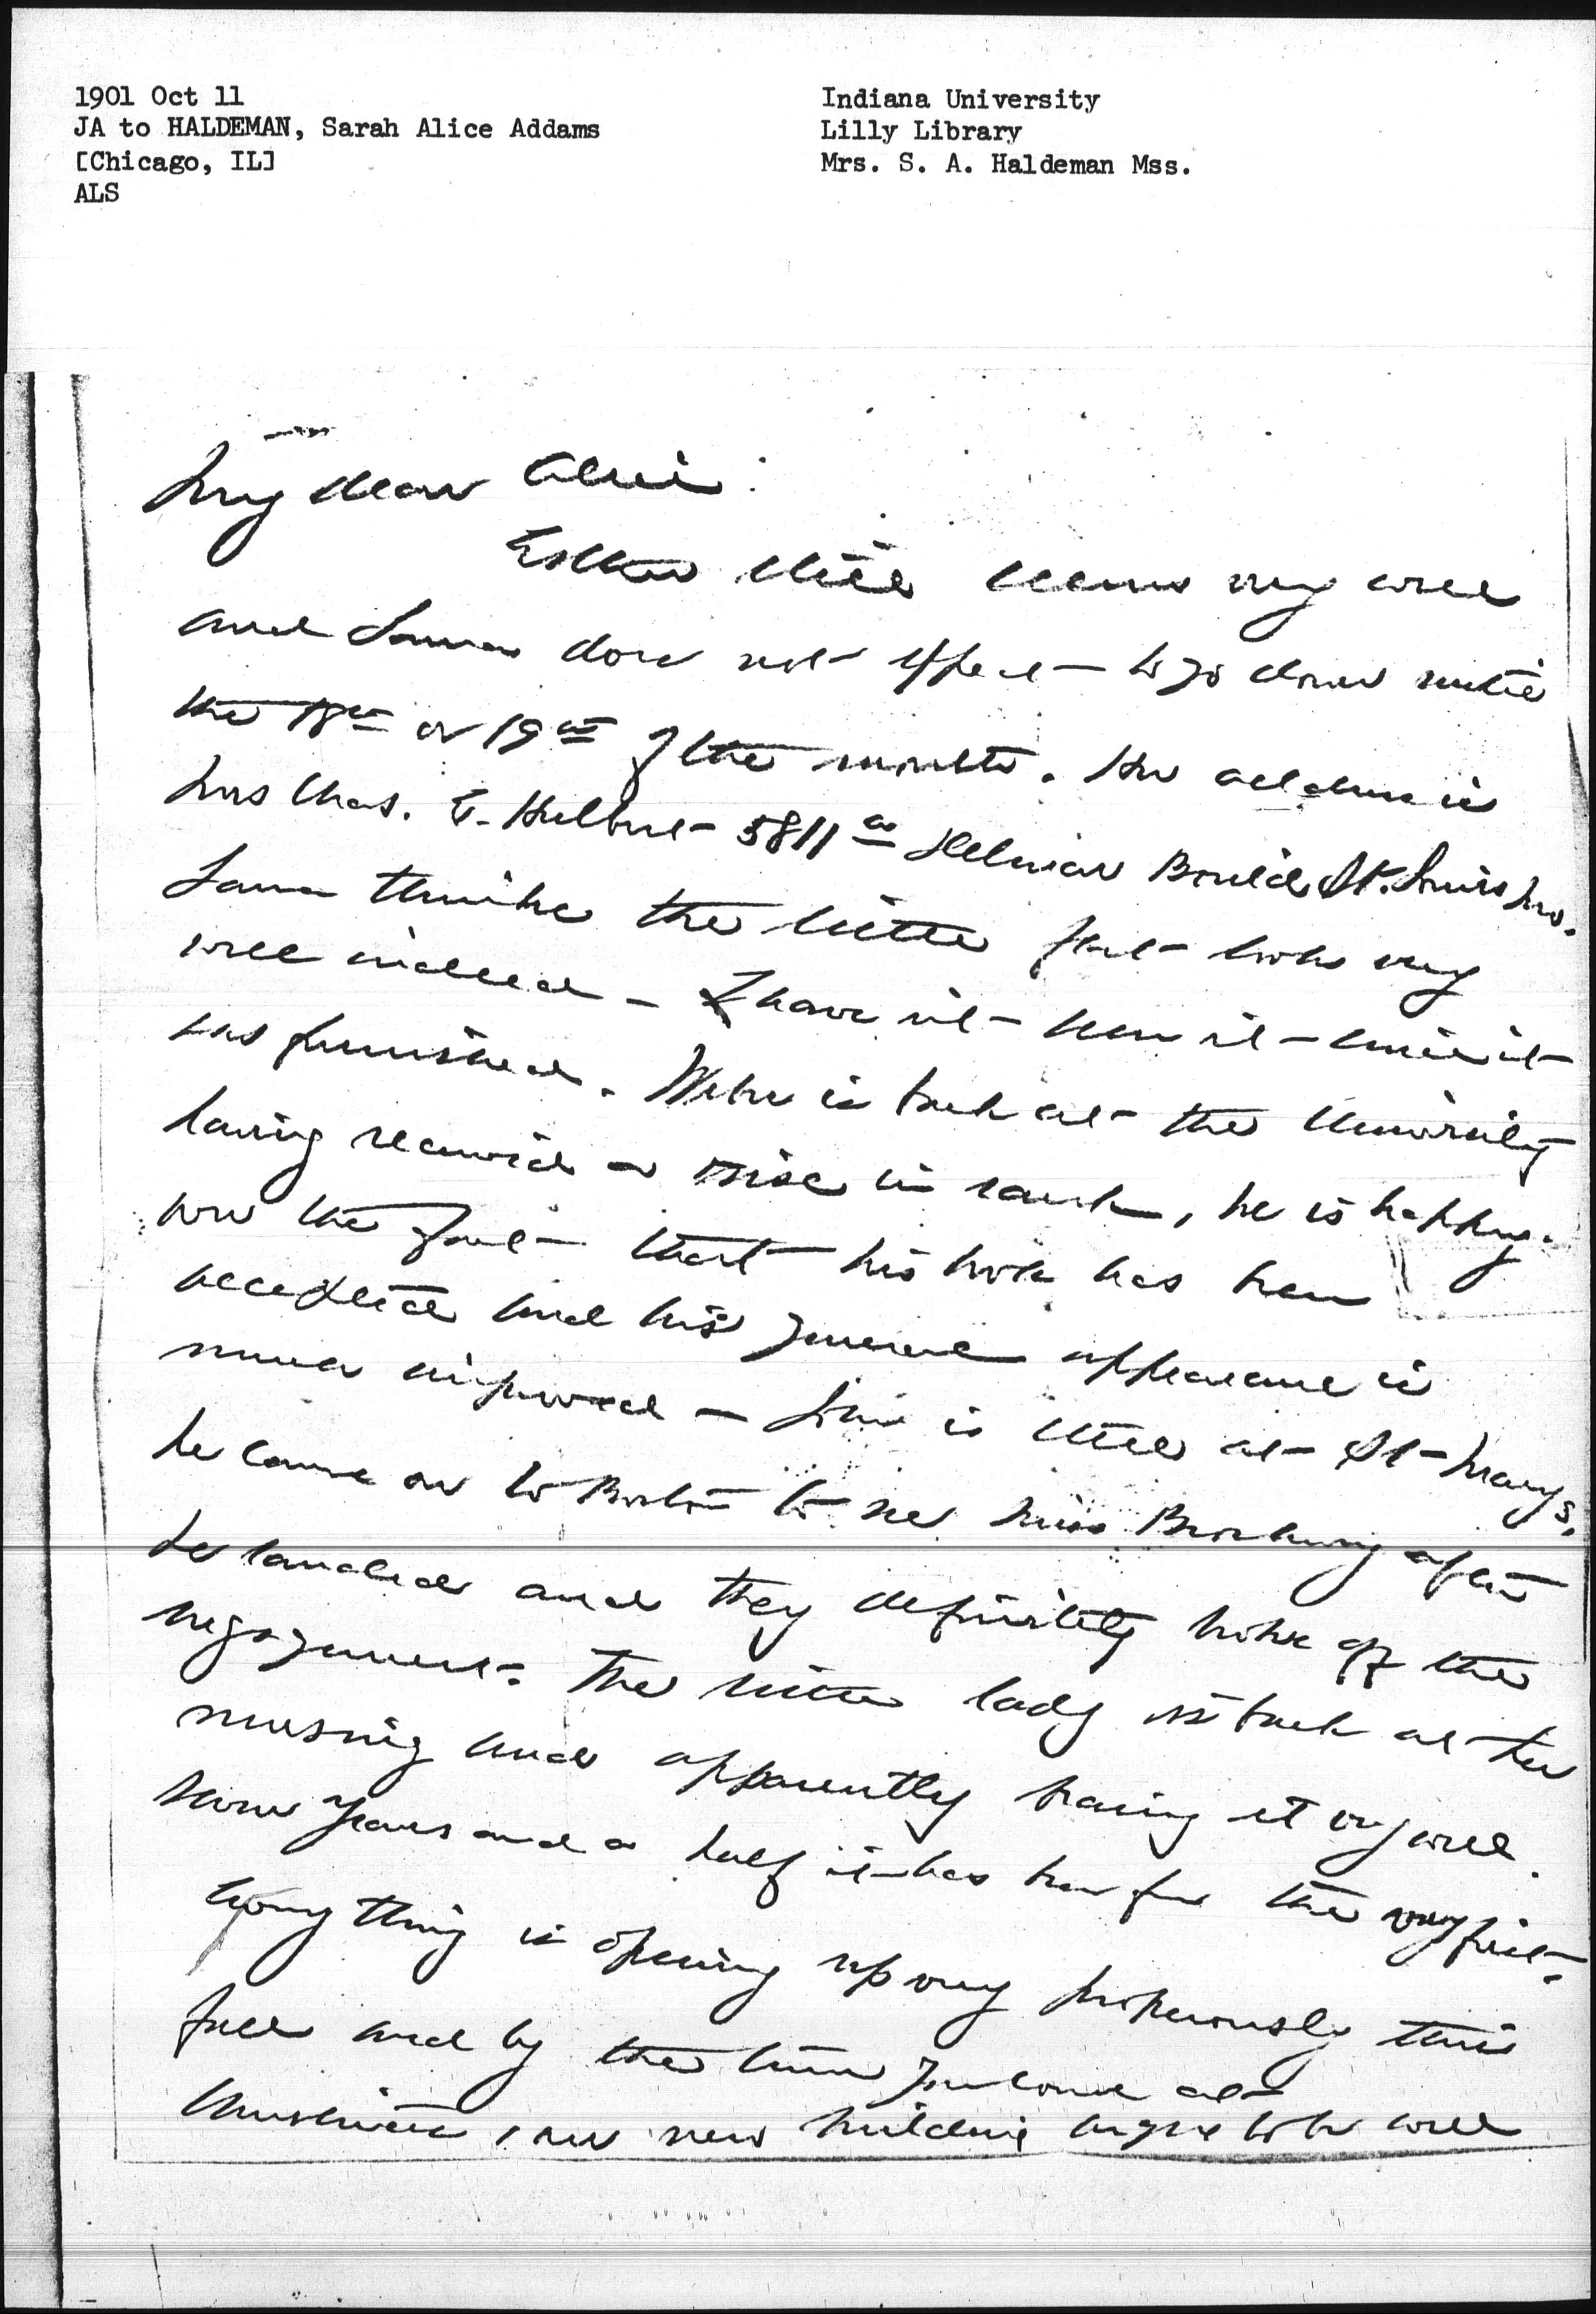 1901 Oct 11
JA to HALDEMAN, Sarah Alice Addams
[Chicago, IL]
ALS
Indiana University
Lilly Library
Mrs. S. A. Haldeman Mss.
My dear Alice:
Esther still seems very well
and Laura does not expect to go down until
the 18th or 19th of the month. Her address is
Mrs Chas. E. Hulbert 5811a Delmar Boul'd St. Louis Mo.
Laura thinks the little flat looks very
well indeed — I have not seen it since it
was furnished. Weber is back at the University
having received a rise in rank, he is happy
over the fact that his book has been
accepted and his general appearance is
much improved — Linn is still at St Mary's.
he came on to Boston to see Miss after
he landed and they definitely broke off the
engagement. The little lady is back at her
nursing and apparently bearing it very well.
years and a half it has been for the very first.
Everything is opening up very prosperously this
fall and by the time you come at
Christmas, our new building ought to be well